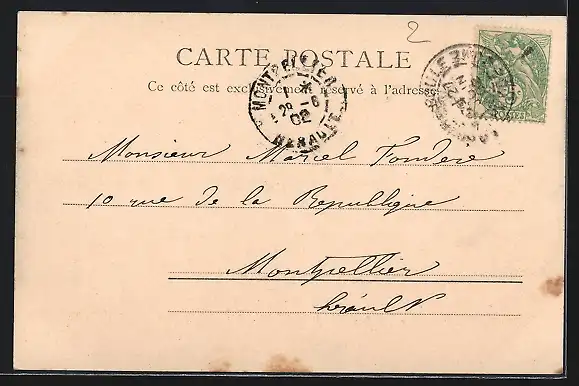 2
CARTE POSTALE
Ce côté est exclusivement réservé à l'adresse
MONTPELLIER
1 *
29 -6
02
HERAULT
POSTES
Monsieur Marcel Fondere
10 rue de la Republique
Montpellier
hérault